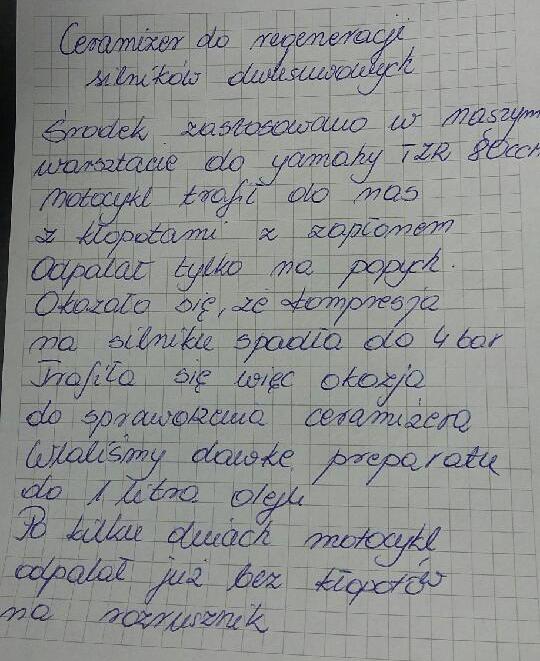 Ceramizer do regeneracji
silników dwusuwowych
Środek zastosowano w naszym
warsztacie do yamahy TZR 80ccm
motocykl trafił do nas
z kłopotami z zapłonem
Odpalał tylko na popych.
Okazało się, że kompresja
na silniku spadła do 4 bar
Trafiła się więc okazja
do sprawdzenia ceramizera
Wlaliśmy dawkę preparatu
do 1 litra oleju
Po kilku dniach motocykl
odpalał już bez kłopotów
na rozrusznik